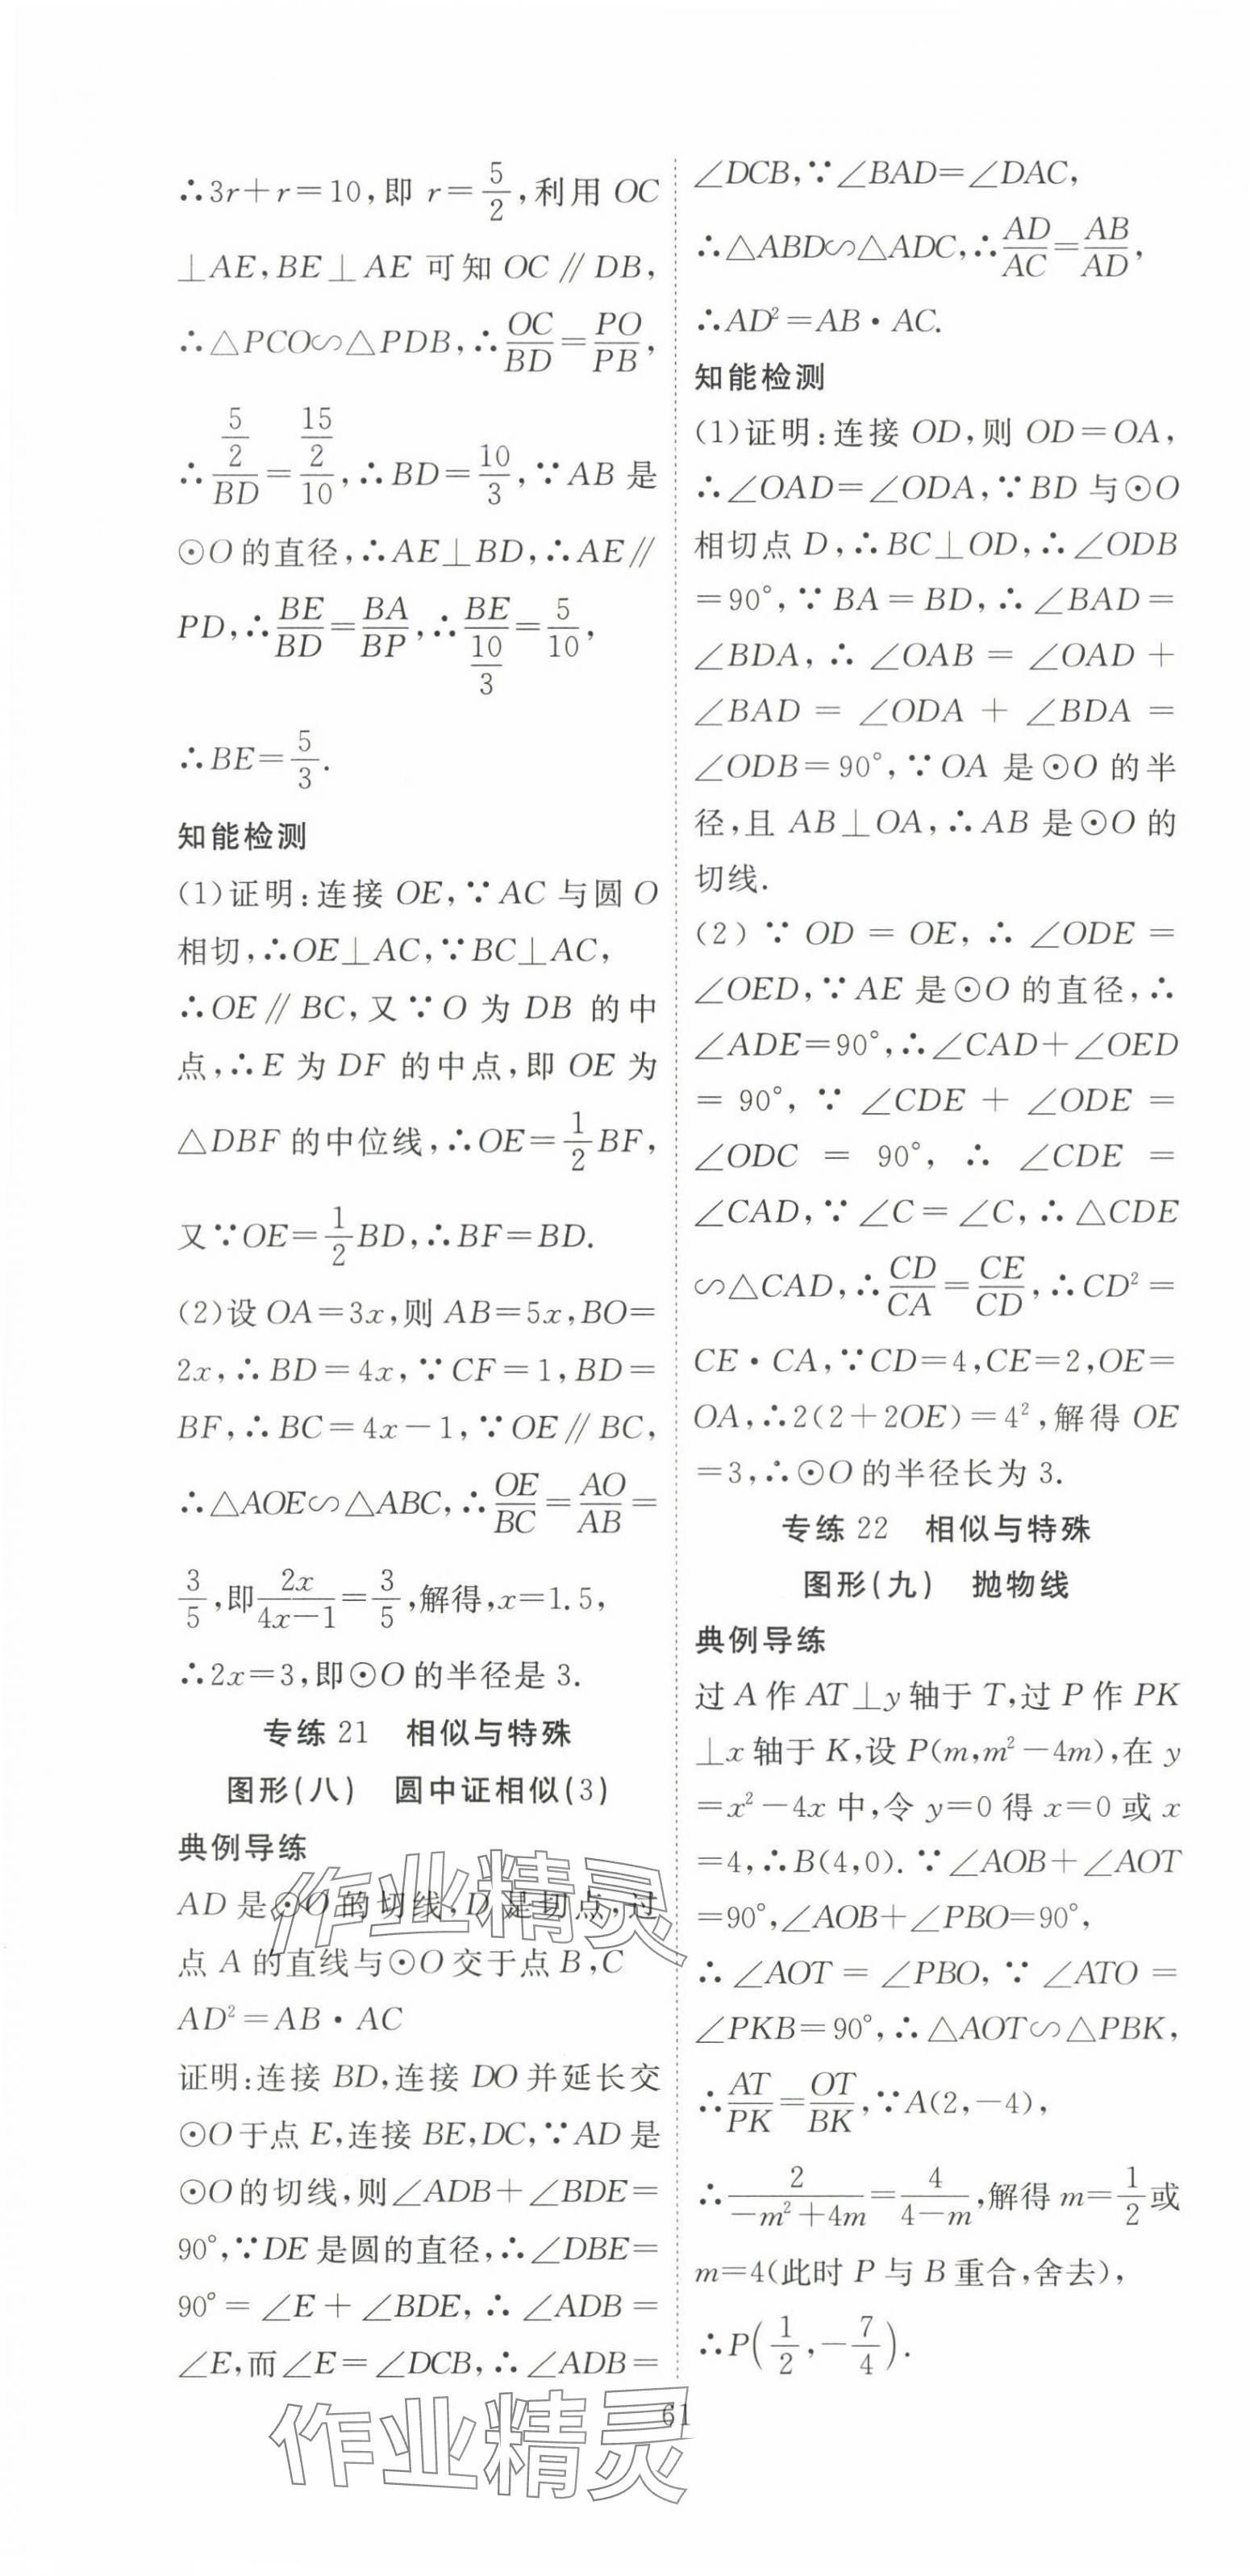 ∴3r+r=10,即 r=5/2,利用 OC
⊥AE,BE⊥AE 可知 OC∥DB,
∴△PCO∽△PDB,∴OC/BD=PO/PB,
∴(5/2)/BD=(15/2)/10,∴BD=10/3,∵AB 是
⊙O的直径,∴AE⊥BD,∴AE∥
PD,∴BE/BD=BA/BP,∴BE/(10/3)=5/10,
∴BE=5/3.
知能检测
(1)证明:连接 OE,∵AC 与圆 O
相切,∴OE⊥AC,∵BC⊥AC,
∴OE∥BC,又∵O 为 DB 的中
点,∴E 为 DF 的中点,即 OE 为
△DBF 的中位线,∴OE=1/2BF,
又∵OE=1/2BD,∴BF=BD.
(2)设 OA=3x,则 AB=5x,BO=
2x,∴BD=4x,∵CF=1,BD=
BF,∴BC=4x-1,∵OE∥BC,
∴△AOE∽△ABC,∴OE/BC=AO/AB=
3/5,即2x/(4x-1)=3/5,解得,x=1.5,
∴2x=3,即⊙O的半径是 3.
专练 21 相似与特殊
图形(八) 圆中证相似(3)
典例导练
AD 是⊙O的切线,D 是切点,过
点 A 的直线与⊙O交于点 B,C
AD²=AB·AC
证明:连接 BD,连接 DO 并延长交
⊙O于点 E,连接 BE,DC,∵AD 是
⊙O的切线,则∠ADB+∠BDE=
90°,∵DE 是圆的直径,∴∠DBE=
90°=∠E+∠BDE,∴∠ADB=
∠E,而∠E=∠DCB,∴∠ADB=
∠DCB,∵∠BAD=∠DAC,
∴△ABD∽△ADC,∴AD/AC=AB/AD,
∴AD²=AB·AC.
知能检测
(1)证明:连接 OD,则 OD=OA,
∴∠OAD=∠ODA,∵BD 与⊙O
相切点 D,∴BC⊥OD,∴∠ODB
=90°,∵BA=BD,∴∠BAD=
∠BDA,∴∠OAB=∠OAD+
∠BAD=∠ODA+∠BDA=
∠ODB=90°,∵OA 是⊙O 的半
径,且 AB⊥OA,∴AB 是⊙O 的
切线.
(2)∵OD=OE,∴∠ODE=
∠OED,∵AE 是⊙O 的直径,∴
∠ADE=90°,∴∠CAD+∠OED
=90°,∵∠CDE+∠ODE=
∠ODC=90°,∴∠CDE=
∠CAD,∵∠C=∠C,∴△CDE
∽△CAD,∴CD/CA=CE/CD,∴CD²=
CE·CA,∵CD=4,CE=2,OE=
OA,∴2(2+2OE)=4²,解得 OE
=3,∴⊙O的半径长为 3.
专练 22 相似与特殊
图形(九) 抛物线
典例导练
过 A 作 AT⊥y 轴于 T,过 P 作 PK
⊥x 轴于 K,设 P(m,m²-4m),在 y
=x²-4x 中,令 y=0 得 x=0 或 x
=4,∴B(4,0).∵∠AOB+∠AOT
=90°,∠AOB+∠PBO=90°,
∴∠AOT=∠PBO,∵∠ATO=
∠PKB=90°,∴△AOT∽△PBK,
∴AT/PK=OT/BK,∵A(2,-4),
∴2/(-m²+4m)=4/(4-m),解得 m=1/2或
m=4(此时 P 与 B 重合,舍去),
∴P(1/2,-7/4).
61
作业精灵
作业精灵